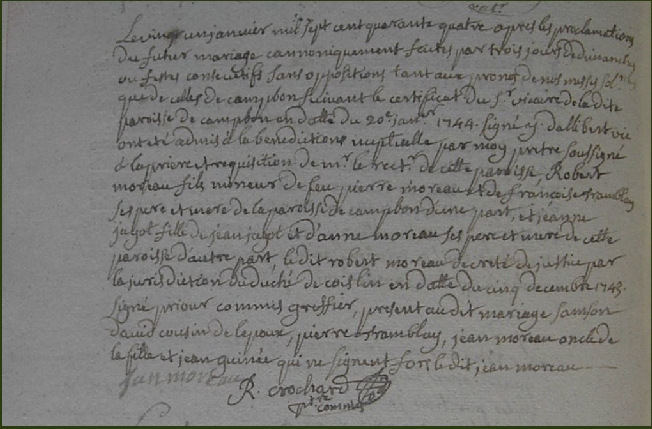 Le vingt un janvier mil sept cent quarante quatre apres les proclamations
du futur mariage cannoniquement faites par trois jours de dimanches
ou festes consecutifs sans oppositions tant aux prones de nos messes
que de celles de campbon suivant le certificat du Sr vicaire de la dite
paroisse de campbon en datte du 20e janvr 1744 signé dalibert vic
ont été admis a la benediction nuptialle par moy pretre soussigné
a la priere et requisition de mr le rectr de cette paroisse, Robert
moreau fils mineur de feu pierre moreau et de françoise tramblay
ses pere et mere de la paroisse de campbon d'une part, et jeanne
jagot fille de jean jagot et d'anne moreau ses pere et mere de cette
paroisse d'autre part, le dit robert moreau decreté de justice par
la jurisdiction du duché de coislin en datte du cinq decembre 1743
signé priour commis greffier, present au dit mariage samson
david cousin de lepoux, pierre tramblay, jean moreau oncle de
la fille et jean guinée qui ne signent fors le dit jean moreau
jan moreau
R. crochard
ptre commis